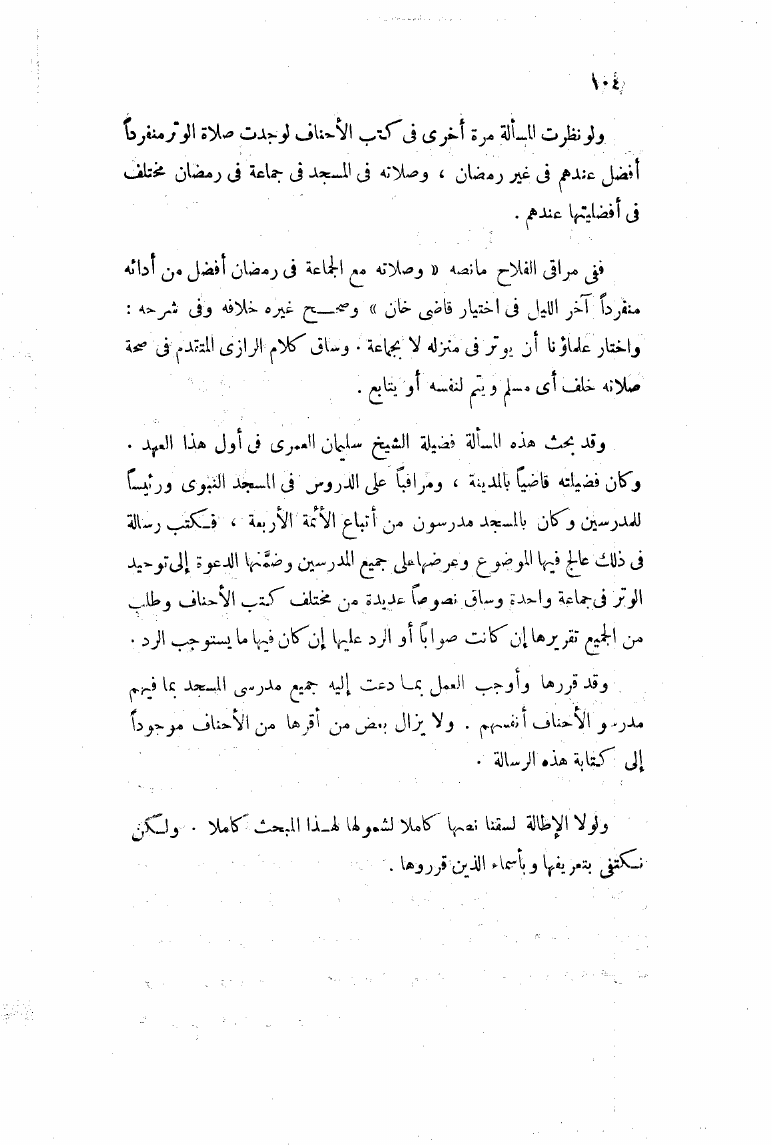 ١٠٤
ولو نظرت المسألة مرة أخرى فى كتب الأحناف لوجدت صلاة الوتر منفرداً
أفضل عندهم فى غير رمضان ، وصلاته فى المسجد فى جماعة فى رمضان مختلف
فى أفضليتها عندهم .
ففى مراقى الفلاح مانصه « وصلاته مع الجماعة فى رمضان أفضل من أدائه
منفرداً آخر الليل فى اختيار قاضى خان » وصحح غيره خلافه وفى شرحه :
واختار علماؤنا أن يوتر فى منزله لا بجماعة . وساق كلام الرازى المتقدم فى صحة
صلاته خلف أى مسلم ويتم لنفسه أو يتابع .
وقد بحث هذه المسألة فضيلة الشيخ سليمان العمرى فى أول هذا العهد .
وكان فضيلته قاضياً بالمدينة ، ومراقباً على الدروس فى المسجد النبوى ورئيساً
للمدرسين وكان بالمسجد مدرسون من أتباع الأئمة الأربعة ، فكتب رسالة
فى ذلك عالج فيها الموضوع وعرضها على جميع المدرسين وضمَّنها الدعوة إلى توحيد
الوتر فى جماعة واحدة وساق نصوصاً عديدة من مختلف كتب الأحناف وطلب
من الجميع تقريرها إن كانت صواباً أو الرد عليها إن كان فيها ما يستوجب الرد .
وقد قررها وأوجب العمل بما دعت إليه جميع مدرسى المسجد بما فيهم
مدرسو الأحناف أنفسهم . ولا يزال بعض من أقرها من الأحناف موجوداً
إلى كتابة هذه الرسالة .
ولولا الإطالة لسقنا نصها كاملا لشمولها لهذا المبحث كاملا . ولكن
نكتفى بتعريفها وبأسماء الذين قرروها .